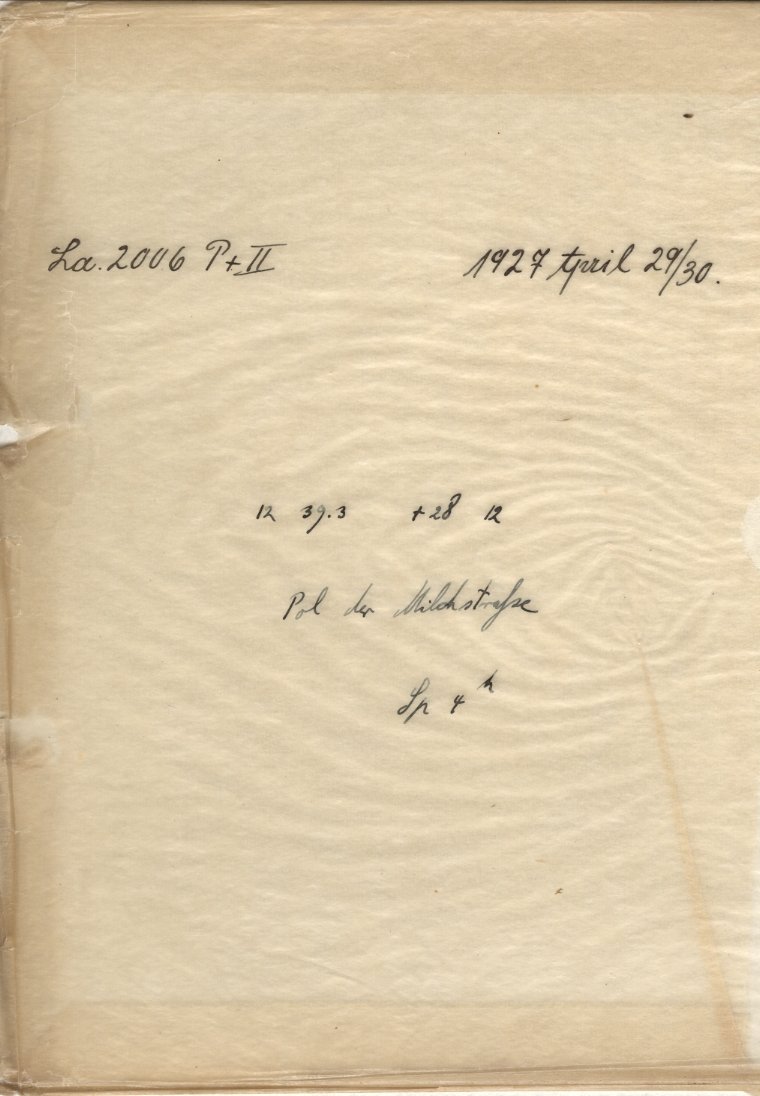 La. 2006 P+II 1927 April 29/30.
12 39.3 +28 12
Pol der Milchstraße
Sp 4 h